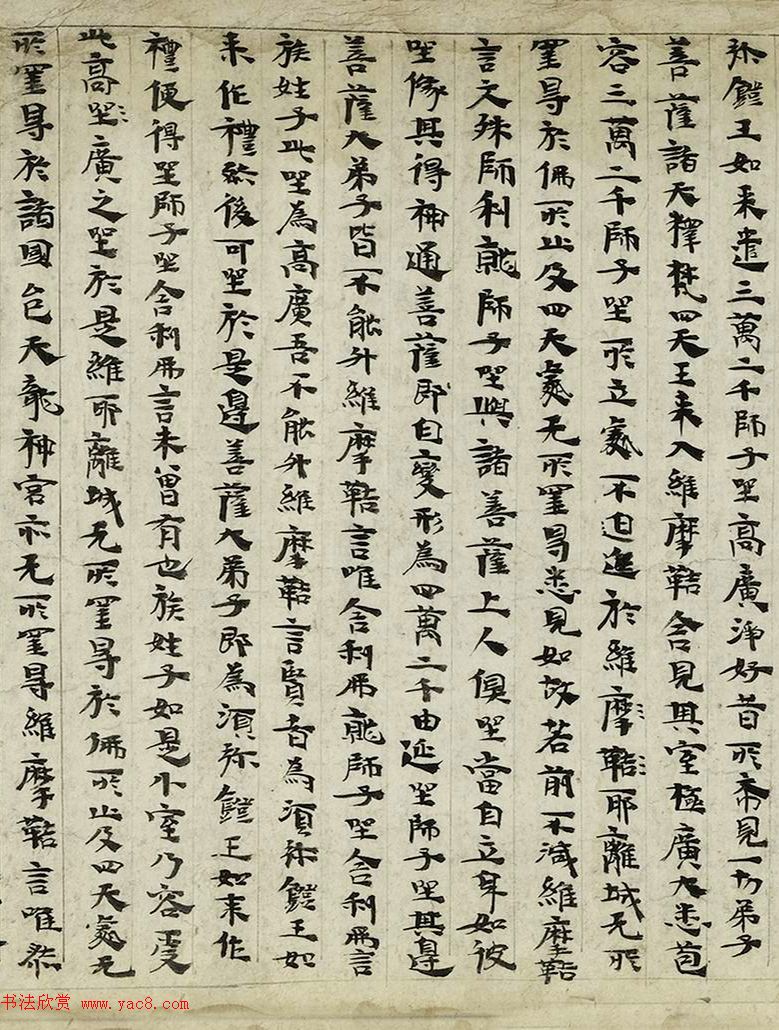 弥鐙王如来遣三萬二千師子㘴高廣淨好昔所希見一切弟子
菩薩諸天釋梵四天王来入維摩鞊舍見其室極廣大悉苞
容三萬二千師子㘴所立處不迫迮於維摩鞊耶離城无所
罣㝵於佛所止及四天處无所罣㝵悉見如故若前不減維摩鞊
言文殊師利就師子㘴與諸菩薩上人俱㘴當自立身如彼
㘴像其得神通菩薩即自變形為四萬二千由延㘴師子㘴其邊
善薩大弟子皆不能升維摩鞊言唯舍利弗就師子㘴舍利弗言
族姓子此㘴為高廣吾不能升維摩鞊言賢者為湏弥鐙王如
来作禮然後可㘴於是邊菩薩大弟子即為湏弥鐙王如来作
禮便得㘴師子㘴舍利弗言未曾有也族姓子如是小室乃容受
此高㘴廣之㘴於是維耶離城无所罣㝵於佛所止及四天處无
所罣㝵於諸國邑天龍神宮亦无所罣㝵維摩鞊言唯然
书法欣赏 www.yac8.com